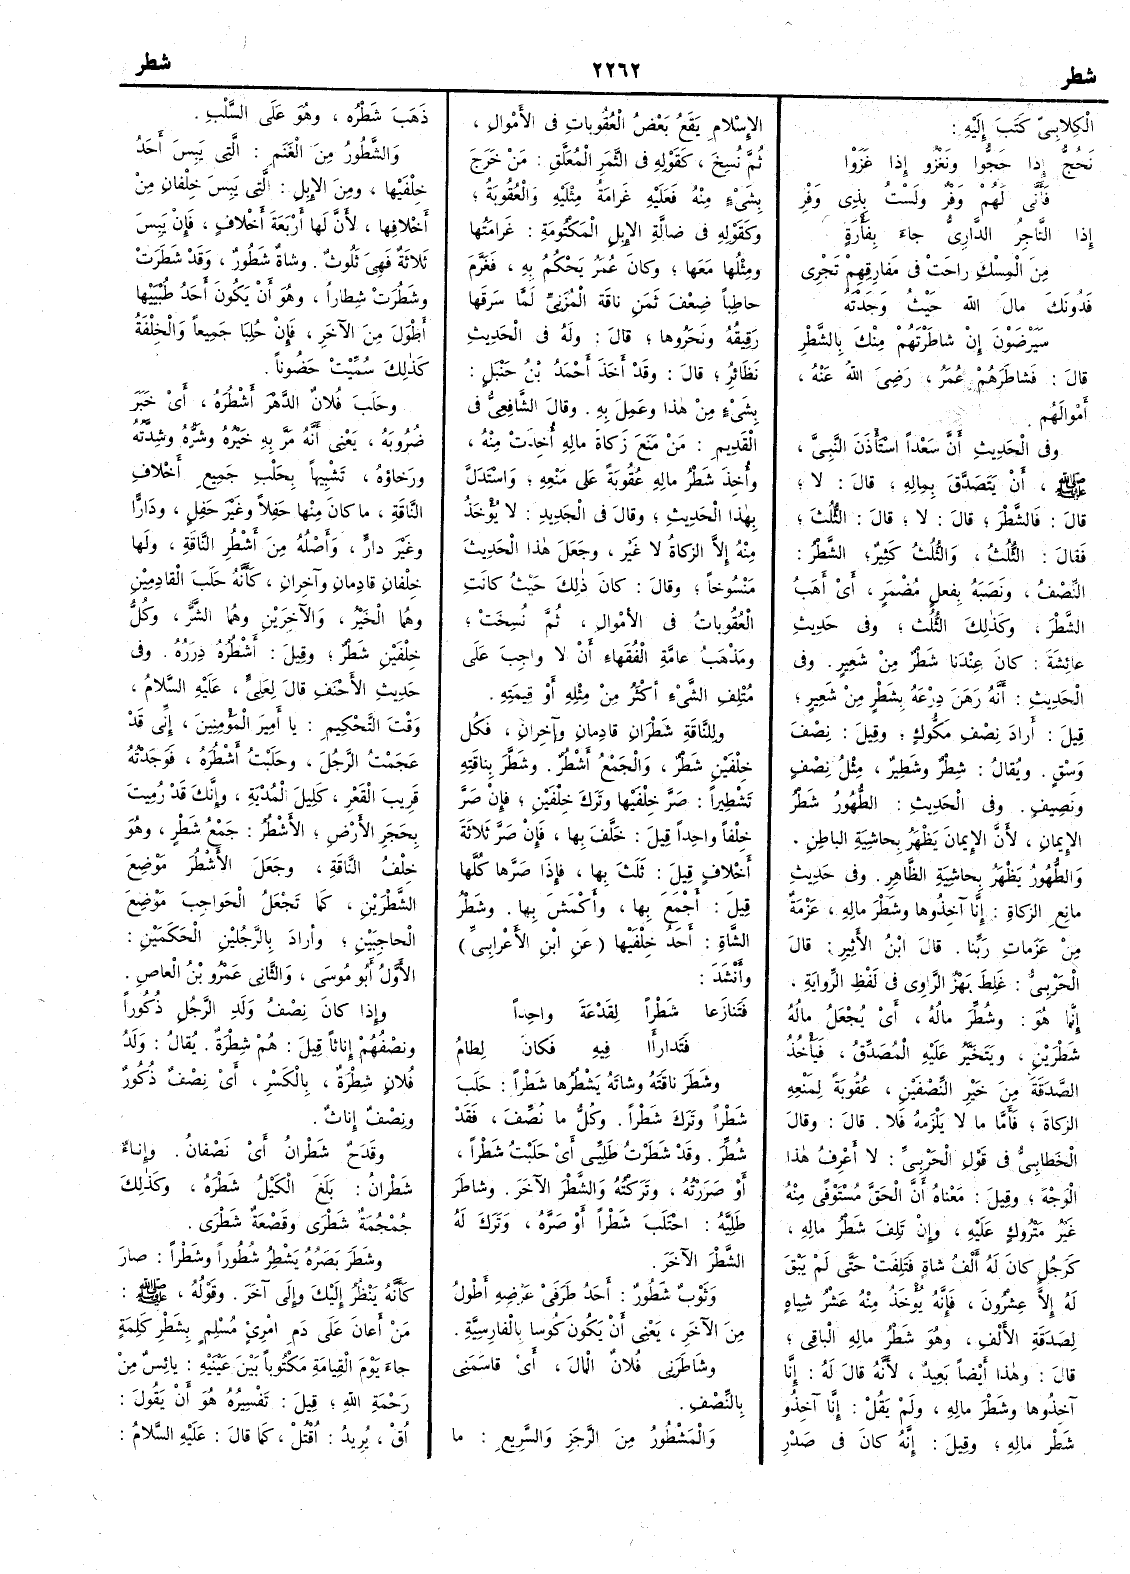 شطر
٢٢٦٢
شطر
الْكِلابِىِّ كَتَبَ إِلَيْهِ :
نَحُجُّ إِذا حَجُّوا وَنَغْزُو إِذا غَزَوْا
فَأَنَّى لَهُمْ وَفْرٌ ولَسْتُ بِذِى وَفْرِ
إِذا التَّاجِرُ الدَّارِىُّ جاءَ بِفَأْرَةٍ
مِنَ الْمِسْكِ راحَتْ فى مَفارِقِهِمْ تَجْرِى
فَدُونَكَ مالَ اللهِ حَيْثُ وَجَدْتَهُ
سَيَرْضَوْنَ إِنْ شاطَرْتَهُمْ مِنْكَ بِالشَّطْرِ
قالَ : فَشاطَرَهُمْ عُمَرُ ، رَضِىَ اللهُ عَنْهُ ،
أَمْوالَهُم .
وفى الْحَدِيثِ أَنَّ سَعْداً اسْتَأْذَنَ النَّبِىَّ ،
ﷺ ، أَنْ يَتَصَدَّقَ بِمالِهِ ، قالَ : لا ؛
قالَ : فَالشَّطْرَ ؛ قالَ : لا ؛ قالَ : الثُّلُثَ ؛
فَقالَ : الثُّلُثُ ، والثُّلُثُ كَثِيرٌ ؛ الشَّطْرُ :
النِّصْفُ ، ونَصَبَهُ بِفِعْلٍ مُضْمَرٍ ، أَىْ أَهَبُ
الشَّطْرَ ، وكَذٰلِكَ الثُّلُثَ ؛ وفى حَدِيثِ
عائِشَةَ : كانَ عِنْدَنا شَطْرٌ مِنْ شَعِيرٍ . وفى
الْحَدِيثِ : أَنَّهُ رَهَنَ دِرْعَهُ بِشَطْرٍ مِنْ شَعِيرٍ ؛
قِيلَ : أَرادَ نِصْفَ مَكُّوكٍ ؛ وقِيلَ : نِصْفَ
وَسْقٍ . ويُقالُ : شِطْرٌ وشَطِيرٌ ، مِثْلُ نِصْفٍ
ونَصِيفٍ . وفى الْحَدِيثِ : الطُّهُورُ شَطْرُ
الإِيمانِ ، لأَنَّ الإِيمانَ يَظْهَرُ بِحاشِيَةِ الباطِنِ .
وَالطُّهُورُ يَظْهَرُ بِحاشِيَةِ الظَّاهِرِ . وفى حَدِيثِ
مانِعِ الزكاةِ : إِنَّا آخِذُوها وشَطْرَ مالِهِ ، عَزْمَةٌ
مِنْ عَزَماتِ رَبِّنا . قالَ ابْنُ الأَثِيرِ : قالَ
الْحَرْبِىُّ : غَلِطَ بَهْزٌ الرَّاوِى فى لَفْظِ الرِّوايَةِ ،
إِنَّما هُوَ : وشُطِّرَ مالُهُ ، أَىْ يُجْعَلُ مالُهُ
شَطْرَيْنِ ، ويَتَخَيَّرُ عَلَيْهِ الْمُصَدِّقُ ، فَيَأْخُذُ
الصَّدَقَةَ مِنْ خَيْرِ النِّصْفَيْنِ ، عُقُوبَةً لِمَنْعِهِ
الزكاةَ ؛ فَأَمَّا ما لا يَلْزَمُهُ فَلا . قالَ : وقالَ
الْخَطابِىُّ فى قَوْلِ الْحَرْبِىِّ : لا أَعْرِفُ هٰذا
الْوَجْهَ ؛ وقِيلَ : مَعْناهُ أَنَّ الْحَقَّ مُسْتَوْفًى مِنْهُ
غَيْرُ مَتْرُوكٍ عَلَيْهِ ، وإِنْ تَلِفَ شَطْرُ مالِهِ ،
كَرَجُلٍ كانَ لَهُ أَلْفُ شاةٍ فَتَلِفَتْ حَتَّى لَمْ يَبْقَ
لَهُ إِلاَّ عِشْرُونَ ، فَإِنَّهُ يُؤْخَذُ مِنْهُ عَشْرُ شِياهٍ
لِصَدَقَةِ الأَلْفِ ، وهُوَ شَطْرُ مالِهِ الْباقِى ؛
قالَ : وهٰذا أَيْضاً بَعِيدٌ ، لأَنَّهُ قالَ لَهُ : إِنَّا
آخِذُوها وشَطْرَ مالِهِ ، ولَمْ يَقُلْ : إِنَّا آخِذُو
شَطْرِ مالِهِ ؛ وقِيلَ : إِنَّهُ كانَ فى صَدْرِ
الإِسْلامِ يَقَعُ بَعْضُ الْعُقُوباتِ فى الأَمْوالِ ،
ثُمَّ نُسِخَ ، كَقَوْلِهِ فى الثَّمَرِ الْمُعَلَّقِ : مَنْ خَرَجَ
بِشَىْءٍ مِنْهُ فَعَلَيْهِ غَرامَةُ مِثْلَيْهِ وَالْعُقُوبَةُ ؛
وكَقَوْلِهِ فى ضالَّةِ الإِبِلِ الْمَكْتُومَةِ : غَرامَتُها
ومِثْلُها مَعَها ؛ وكانَ عُمَرُ يَحْكُمُ بِهِ ، فَغَرَّمَ
حاطِباً ضِعْفَ ثَمَنِ ناقَةِ الْمُزَنِىِّ لَمَّا سَرَقَها
رَقِيقُهُ ونَحَرُوها ؛ قالَ : ولَهُ فى الْحَدِيثِ
نَظائِرُ ؛ قالَ : وقَدْ أَخَذَ أَحْمَدُ بْنُ حَنْبَلٍ :
بِشَىْءٍ مِنْ هٰذا وعَمِلَ بِهِ . وقالَ الشَّافِعِىُّ فى
الْقَدِيمِ : مَنْ مَنَعَ زَكاةَ مالِهِ أُخِذَتْ مِنْهُ ،
وأُخِذَ شَطْرُ مالِهِ عُقُوبَةً عَلَى مَنْعِهِ ؛ وَاسْتَدَلَّ
بِهٰذا الْحَدِيثِ ؛ وقالَ فى الْجَدِيدِ : لا يُؤْخَذُ
مِنْهُ إِلاَّ الزكاةُ لا غَيْرُ ، وجَعَلَ هٰذا الْحَدِيثَ
مَنْسُوخاً ؛ وقالَ : كانَ ذٰلِكَ حَيْثُ كانَتِ
الْعُقُوباتُ فى الأَمْوالِ ، ثُمَّ نُسِخَتْ ؛
ومَذْهَبُ عامَّةِ الْفُقَهاءِ أَنْ لا واجِبَ عَلَى
مُتْلِفِ الشَّىْءِ أَكْثَرُ مِنْ مِثْلِهِ أَوْ قِيمَتِهِ .
ولِلنَّاقَةِ شَطْرانِ قادِمانِ وآخِرانِ ، فَكُلُّ
خِلْفَيْنِ شَطْرٌ ، وَالْجَمْعُ أَشْطُرٌ . وشَطَّرَ بِناقَتِهِ
تَشْطِيراً : صَرَّ خِلْفَيْها وتَرَكَ خِلْفَيْنِ ؛ فإِنْ صَرَّ
خِلْفاً واحِداً قِيلَ : خَلَّفَ بِها ، فَإِنْ صَرَّ ثَلاثَةَ
أَخْلافٍ قِيلَ : ثَلَثَ بِها ، فَإِذا صَرَّها كُلَّها
قِيلَ : أَجْمَعَ بِها ، وأَكْمَشَ بِها . وشَطْرُ
الشَّاةِ : أَحَدُ خِلْفَيْها ( عَنِ ابْنِ الأَعْرابِىِّ )
وأَنْشَدَ :
فَتَنازَعا شَطْراً لِقَدْعَةَ واحِداً
فَتَدارَأَا فِيهِ فَكانَ لِطامُ
وشَطَرَ ناقَتَهُ وشاتَهُ يَشْطُرُها شَطْراً : حَلَبَ
شَطْراً وتَرَكَ شَطْراً . وكُلُّ ما نُصِّفَ ، فَقَدْ
شُطِّرَ . وقَدْ شَطَرْتُ طَلِيِّى أَىْ حَلَبْتُ شَطْراً ،
أَوْ صَرَرْتُهُ ، وتَرَكْتُهُ وَالشَّطْرَ الآخَرَ . وشاطَرَ
طَلِيَّهُ : احْتَلَبَ شَطْراً أَوْ صَرَّهُ ، وَتَرَكَ لَهُ
الشَّطْرَ الآخَرَ .
وَثَوْبٌ شَطُورٌ : أَحَدُ طَرَفَىْ عَرْضِهِ أَطْوَلُ
مِنَ الآخَرِ ، يَعْنِى أَنْ يَكُونَ كُوسا بِالْفارِسِيَّةِ .
وشاطَرَنِى فُلانٌ الْمالَ ، أَىْ قاسَمَنِى
بِالنِّصْفِ .
وَالْمَشْطُورُ مِنَ الرَّجَزِ وَالسَّرِيعِ : ما
ذَهَبَ شَطْرُه ، وهُوَ عَلَى السَّلْبِ .
وَالشَّطُورُ مِنَ الْغَنَمِ : الَّتِى يَبِسَ أَحَدُ
خِلْفَيْها ، ومِنَ الإِبِلِ : الَّتِى يَبِسَ خِلْفانِ مِنْ
أَخْلافِها ، لأَنَّ لَها أَرْبَعَةَ أَخْلافٍ ، فَإِنْ يَبِسَ
ثَلاثَةٌ فَهِىَ ثَلُوثٌ . وشاةٌ شَطُورٌ ، وَقَدْ شَطَرَتْ
وشَطُرَتْ شِطاراً ، وهُوَ أَنْ يَكُونَ أَحَدُ طُبْيَيْها
أَطْوَلَ مِنَ الآخَرِ ، فَإِنْ حُلِبَا جَمِيعاً وَالْخِلْفَةُ
كَذٰلِكَ سُمِّيَتْ حَضُوناً .
وحَلَبَ فُلانٌ الدَّهْرَ أَشْطُرَهُ ، أَىْ خَبَرَ
ضُرُوبَهُ ، يَعْنِى أَنَّهُ مَرَّ بِهِ خَيْرُهُ وشَرُّهُ وشِدَّتُهُ
ورَخاؤهُ ، تَشْبِيهاً بِحَلْبِ جَمِيعِ أَخْلافِ
النَّاقَةِ ، ما كانَ مِنْها حَفِلاً وغَيْرَ حَفِلٍ ، ودَارًّا
وغَيْرَ دارٍّ ، وأَصْلُهُ مِنَ أَشْطُرِ النَّاقَةِ ، ولَها
خِلْفانِ قادِمانِ وآخِرانِ ، كَأَنَّهُ حَلَبَ الْقادِمَيْنِ
وهُما الْخَيْرُ ، وَالآخِرَيْنِ وهُما الشَّرُّ ، وكُلُّ
خِلْفَيْنِ شَطْرٌ ؛ وقِيلَ : أَشْطُرُهُ دِرَرُهُ . وفى
حَدِيثِ الأَحْنَفِ قالَ لِعَلِىٍّ ، عَلَيْهِ السَّلامُ ،
وَقْتَ التَّحْكِيمِ : يا أَمِيرَ الْمُؤْمِنِينَ ، إِنِّى قَدْ
عَجَمْتُ الرَّجُلَ ، وحَلَبْتُ أَشْطُرَهُ ، فَوَجَدْتُهُ
قَرِيبَ الْقَعْرِ ، كَلِيلَ الْمُدْيَةِ ، وإِنَّكَ قَدْ رُمِيتَ
بِحَجَرِ الأَرْضِ ؛ الأَشْطُرُ : جَمْعُ شَطْرٍ ، وهُوَ
خِلْفُ النَّاقَةِ ، وجَعَلَ الأَشْطُرَ مَوْضِعَ
الشَّطْرَيْنِ ، كَما تَجْعَلُ الْحَواجِبَ مَوْضِعَ
الْحاجِبَيْنِ ؛ وأرادَ بِالرَّجُلَيْنِ الْحَكَمَيْنِ :
الأَوَّلُ أَبُو مُوسَى ، وَالثَّانِى عَمْرُو بْنُ الْعاصِ .
وإِذا كانَ نِصْفُ وَلَدِ الرَّجُلِ ذُكُوراً
ونصْفُهُمْ إِناثاً قِيلَ : هُمْ شِطْرَةٌ . يُقالُ : وَلَدُ
فُلانٍ شِطْرَةٌ ، بِالْكَسْرِ ، أَىْ نِصْفٌ ذُكُورٌ
ونِصْفٌ إِناثٌ .
وقَدَحٌ شَطْرانُ أَىْ نَصْفانُ . وإِناءٌ
شَطْرانُ : بَلَغَ الْكَيْلُ شَطْرَهُ ، وكَذٰلِكَ
جُمْجُمَةٌ شَطْرَى وقَصْعَةٌ شَطْرَى .
وشَطَرَ بَصَرُهُ يَشْطِرُ شُطُوراً وشَطْراً : صارَ
كَأَنَّهُ يَنْظُرُ إِلَيْكَ وإِلَى آخَرَ . وقَوْلُهُ ، ﷺ :
مَنْ أَعانَ عَلَى دَمِ امْرِئٍ مُسْلِمٍ بِشَطْرِ كَلِمَةٍ
جاءَ يَوْمَ الْقِيامَةِ مَكْتُوباً بَيْنَ عَيْنَيْهِ : يائِسٌ مِنْ
رَحْمَةِ اللهِ ؛ قِيلَ : تَفْسِيرُهُ هُوَ أَنْ يَقُولَ :
اُقْ ، يُرِيدُ : اُقْتُلْ ، كَما قالَ : عَلَيْهِ السَّلامُ :